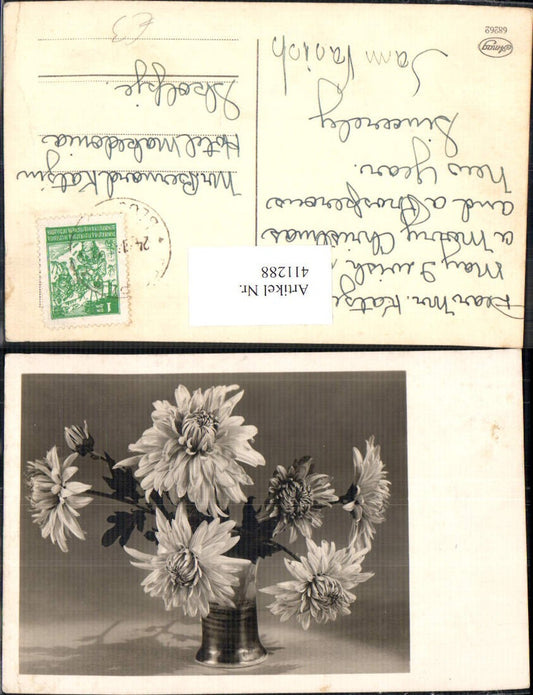 Dear Mr. Katzin
May I wish
a Merry Christmas
and a Prosperous
New Year.
Sincerely
Sam
Mr. Bernard Katzin
Hotel Makedonia
Skoplje.
£3
24.
1
Amag
68262
Artikel Nr.
411288